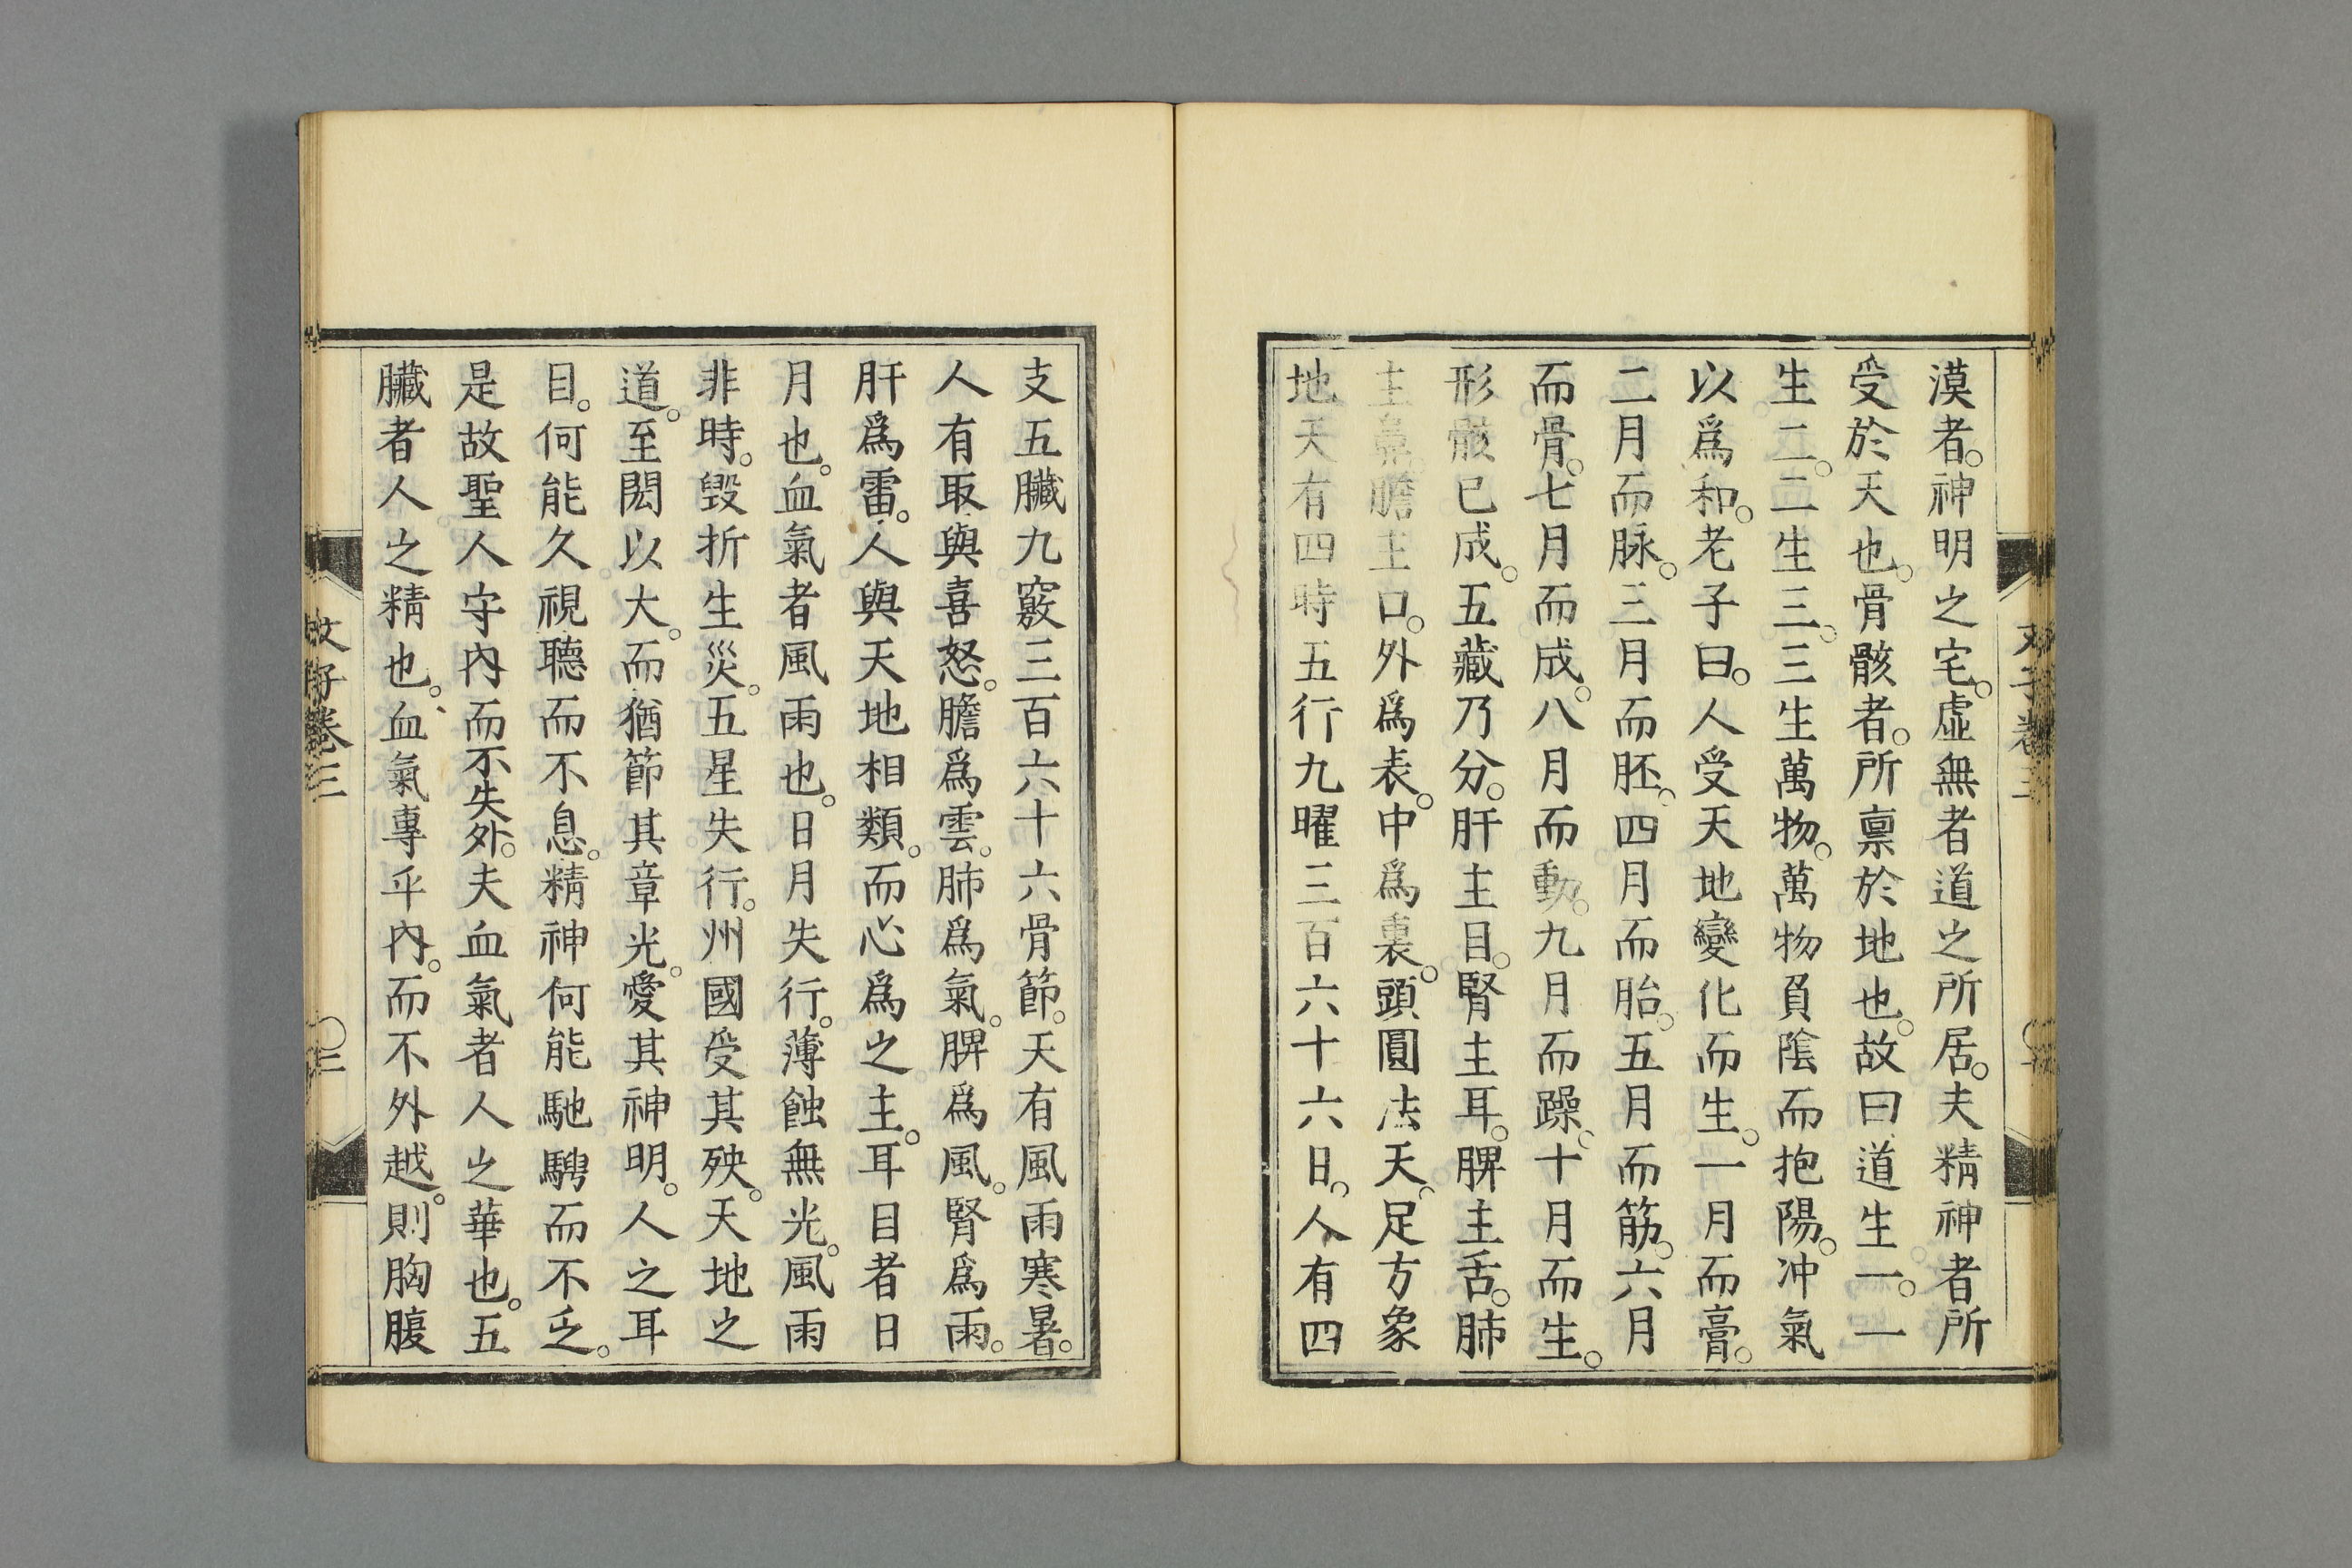 漠者。神明之宅。虛無者道之所居。夫精神者所
受於天也。骨骸者。所禀於地也。故曰道生一。一
生二。二生三。三生萬物。萬物負陰而抱陽。冲氣
以爲和。老子曰。人受天地變化而生。一月而膏。
二月而脉。三月而胚。四月而胎。五月而筋。六月
而骨。七月而成。八月而動。九月而躁。十月而生。
形骸已成。五藏乃分。肝主目。腎主耳。脾主舌。肺
主鼻。膽主口。外爲表。中爲裏。頭圓法天。足方象
地天有四時五行九曜三百六十六日。人有四
支五臟九竅三百六十六骨節。天有風雨寒暑。
人有取與喜怒。膽爲雲。肺爲氣。脾爲風。腎爲雨。
肝爲雷。人與天地相類。而心爲之主。耳目者日
月也。血氣者風雨也。日月失行。薄蝕無光。風雨
非時。毁折生災。五星失行。州國受其殃。天地之
道。至閎以大。而猶節其章光。愛其神明。人之耳
目。何能久視聽而不息。精神何能馳騁而不乏。
是故聖人守內而不失外。夫血氣者人之華也。五
臟者人之精也。血氣專乎內。而不外越。則胸腹
文子卷三
三